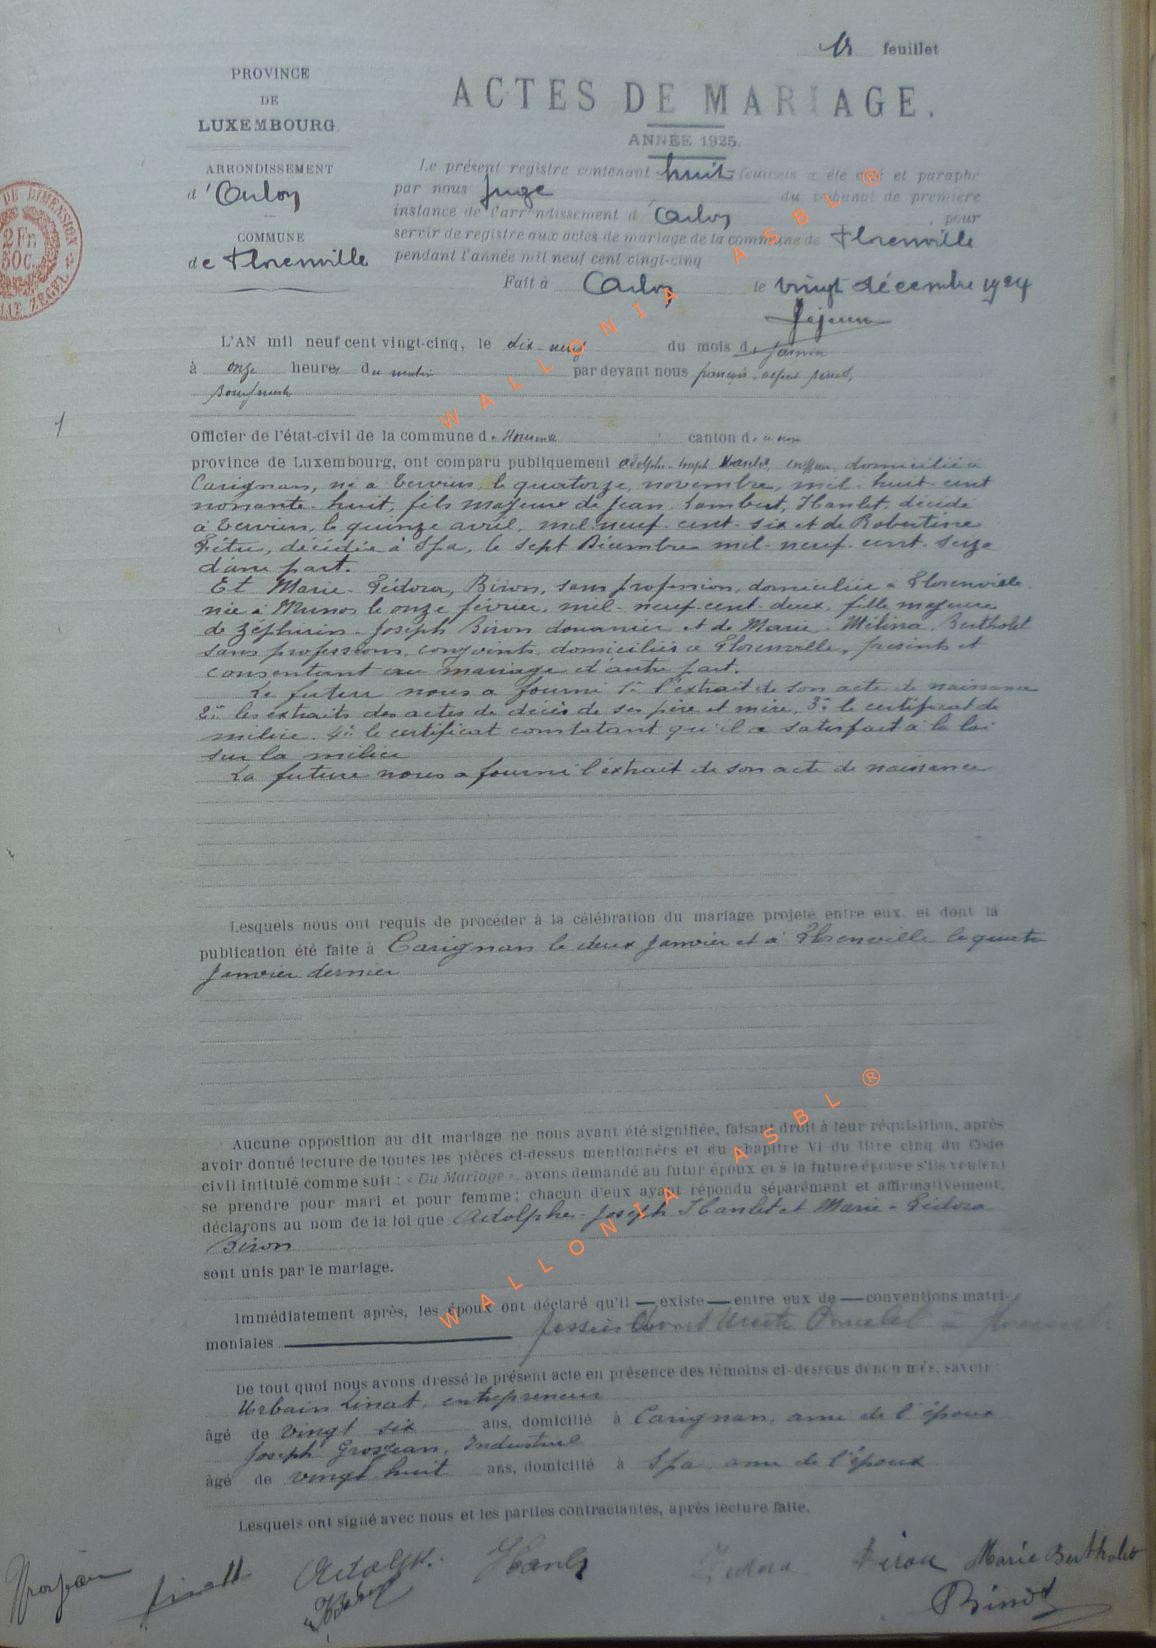 1r feuillet
PROVINCE
DE
LUXEMBOURG
ARRONDISSEMENT
d'Arlon
COMMUNE
de Florenville
ACTES DE MARIAGE.
ANNÉE 1925.
Le présent registre contenant huit feuillets a été coté et paraphé
par nous Juge du tribunal de première
instance de l'arrondissement d'Arlon, pour
servir de registre aux actes de mariage de la commune de Florenville
pendant l'année mil neuf cent vingt-cinq
Fait à Arlon le vingt décembre 1924
L'AN mil neuf cent vingt-cinq, le dix-neuf du mois de Janvier
à onze heures du matin par devant nous françois
Bourgmestre
1
Officier de l'état-civil de la commune de canton d
province de Luxembourg, ont comparu publiquement Adolphe-Joseph Hanlet, coiffeur, domicilié à
Carignan, né à Verviers, le quatorze, novembre, mil-huit-cent
nonante-huit, fils majeur de Jean Lambert, Hanlet, décédé
à Verviers, le quinze avril, mil-neuf-cent-six et de Robertine
Fétu, décédée à Spa, le sept Décembre mil-neuf-cent-seize
d'une part.
Et Marie-Léidora, Biron, sans profession, domiciliée à Florenville
née à Muno, le onze février, mil-neuf-cent-deux, fille majeure
de Zéphirin-Joseph Biron douanier et de Marie Mélina Bertholet
sans profession, conjoints, domiciliés à Florenville, présents et
consentant au mariage d'autre part.
Le futur nous a fourni 1° l'extrait de son acte de naissance
2° les extraits des actes de décès de ses père et mère, 3° le certificat de
milice. 4° le certificat constatant qu'il a satisfait à la loi
sur la milice
La future nous a fourni l'extrait de son acte de naissance
Lesquels nous ont requis de procéder à la célébration du mariage projeté entre eux, et dont la
publication été faite à Carignan le deux Janvier et à Florenville le quatre
Janvier dernier
Aucune opposition au dit mariage ne nous ayant été signifiée, faisant droit à leur réquisition, après
avoir donné lecture de toutes les pièces ci-dessus mentionnées et du chapitre VI du titre cinq du Code
civil intitulé comme suit : « Du Mariage », avons demandé au futur époux et à la future épouse s'ils veulent
se prendre pour mari et pour femme ; chacun d'eux ayant répondu séparément et affirmativement,
déclarons au nom de la loi que Adolphe-Joseph Hanlet et Marie-Léidora
Biron
sont unis par le mariage.
Immédiatement après, les époux ont déclaré qu'il — existe — entre eux de — conventions matri-
moniales
De tout quoi nous avons dressé le présent acte en présence des témoins ci-dessous dénommés, savoir
Urbain Linat, entrepreneur
âgé de vingt six ans, domicilié à Carignan, ami de l'époux
Joseph Grosjean, Industriel
âgé de vingt huit ans, domicilié à Spa ami de l'époux
Lesquels ont signé avec nous et les parties contractantes, après lecture faite.
Grosjean Adolph. Hanlet Biron Marie Bertholet
WALLONIA ASBL ®
WALLONIA ASBL ®